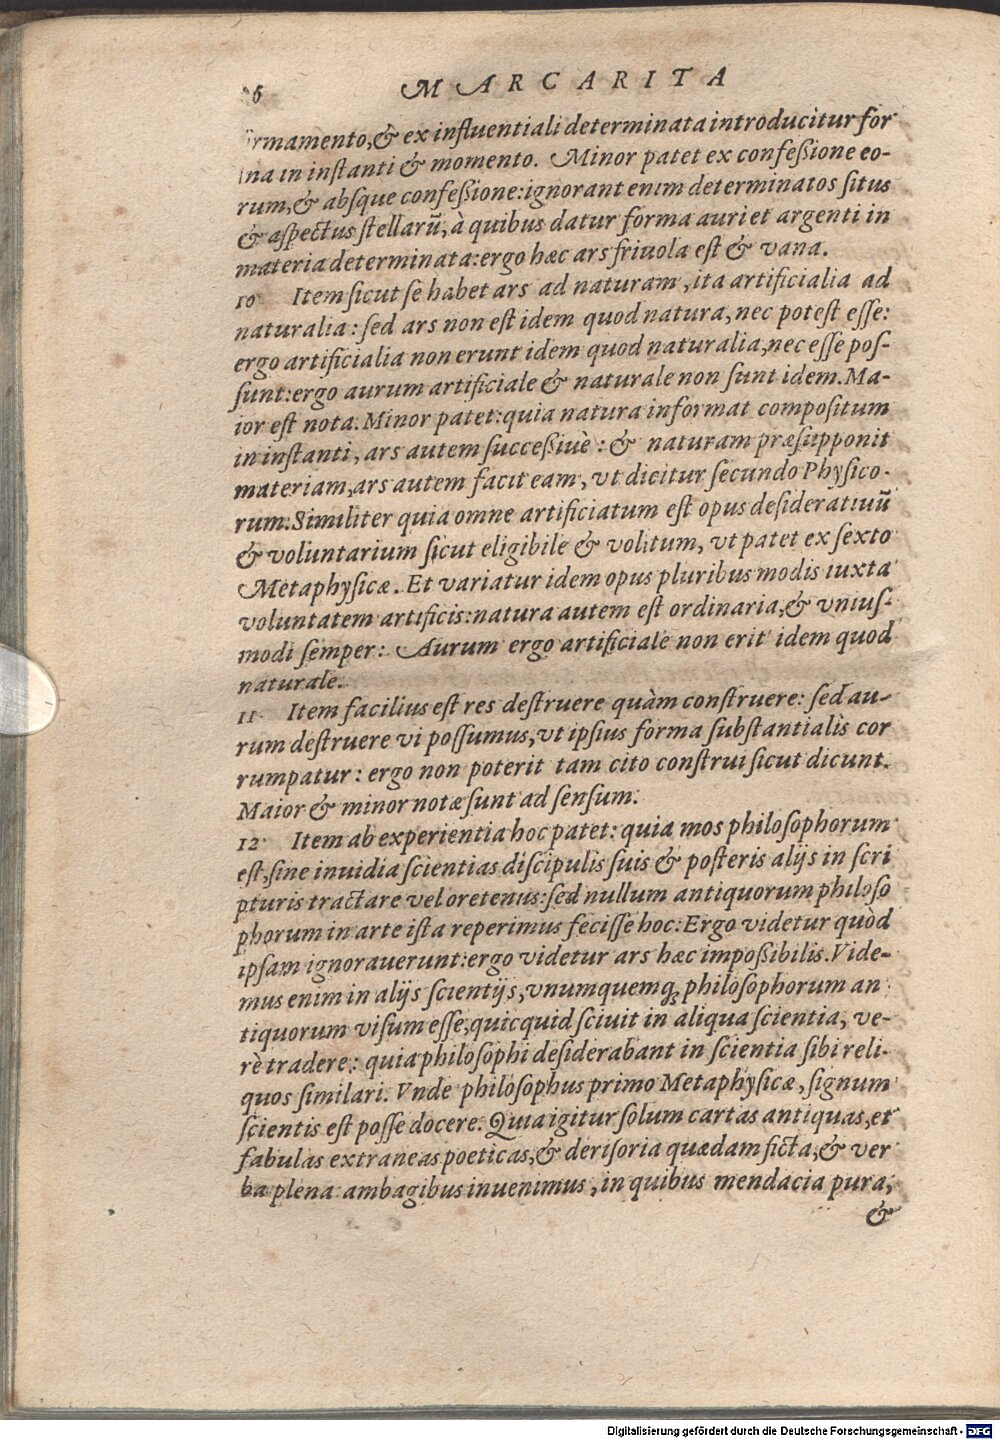 6 MARCARITA
rmamento,& ex influentiali determinata introducitur for
ma in instanti & momento. Minor patet ex confeßione eo-
rum,& absque confeßione:ignorant enim determinatos situs
& aspectus stellarũ, à quibus datur forma auri et argenti in
materia determinata:ergo hæc ars friuola est & vana.
10 Item sicut se habet ars ad naturam, ita artificialia ad
naturalia: sed ars non est idem quod natura, nec potest esse:
ergo artificialia non erunt idem quod naturalia,nec esse pos-
sunt:ergo aurum artificiale & naturale non sunt idem. Ma-
ior est nota. Minor patet:quia natura informat compositum
in instanti, ars autem succeßiuè: & naturam præsupponit
materiam,ars autem facit eam, vt dicitur secundo Physico-
rum.Similiter quia omne artificiatum est opus desideratiuũ
& voluntarium sicut eligibile & volitum, vt patet ex sexto
Metaphysicæ. Et variatur idem opus pluribus modis iuxta
voluntatem artificis:natura autem est ordinaria,& vnius-
modi semper: Aurum ergo artificiale non erit idem quod
naturale.
11 Item facilius est res destruere quàm construere: sed au-
rum destruere vi possumus,vt ipsius forma substantialis cor
rumpatur: ergo non poterit tam cito construi sicut dicunt.
Maior & minor notæ sunt ad sensum.
12 Item ab experientia hoc patet: quia mos philosophorum
est,sine inuidia scientias discipulis suis & posteris alijs in scri
pturis tractare vel oretenus:sed nullum antiquorum philoso
phorum in arte ista reperimus fecisse hoc:Ergo videtur quòd
ipsam ignorauerunt:ergo videtur ars hæc impoßibilis.Vide-
mus enim in alijs scientijs,vnumquemq; philosophorum an
tiquorum visum esse,quicquid sciuit in aliqua scientia, ve-
rè tradere: quia philosophi desiderabant in scientia sibi reli-
quos similari. Vnde philosophus primo Metaphysicæ, signum
scientis est posse docere. Quia igitur solum cartas antiquas,et
fabulas extraneas poeticas,& derisoria quædam ficta,& ver
ba plena ambagibus inuenimus, in quibus mendacia pura,
&
Digitalisierung gefördert durch die Deutsche Forschungsgemeinschaft - DFG